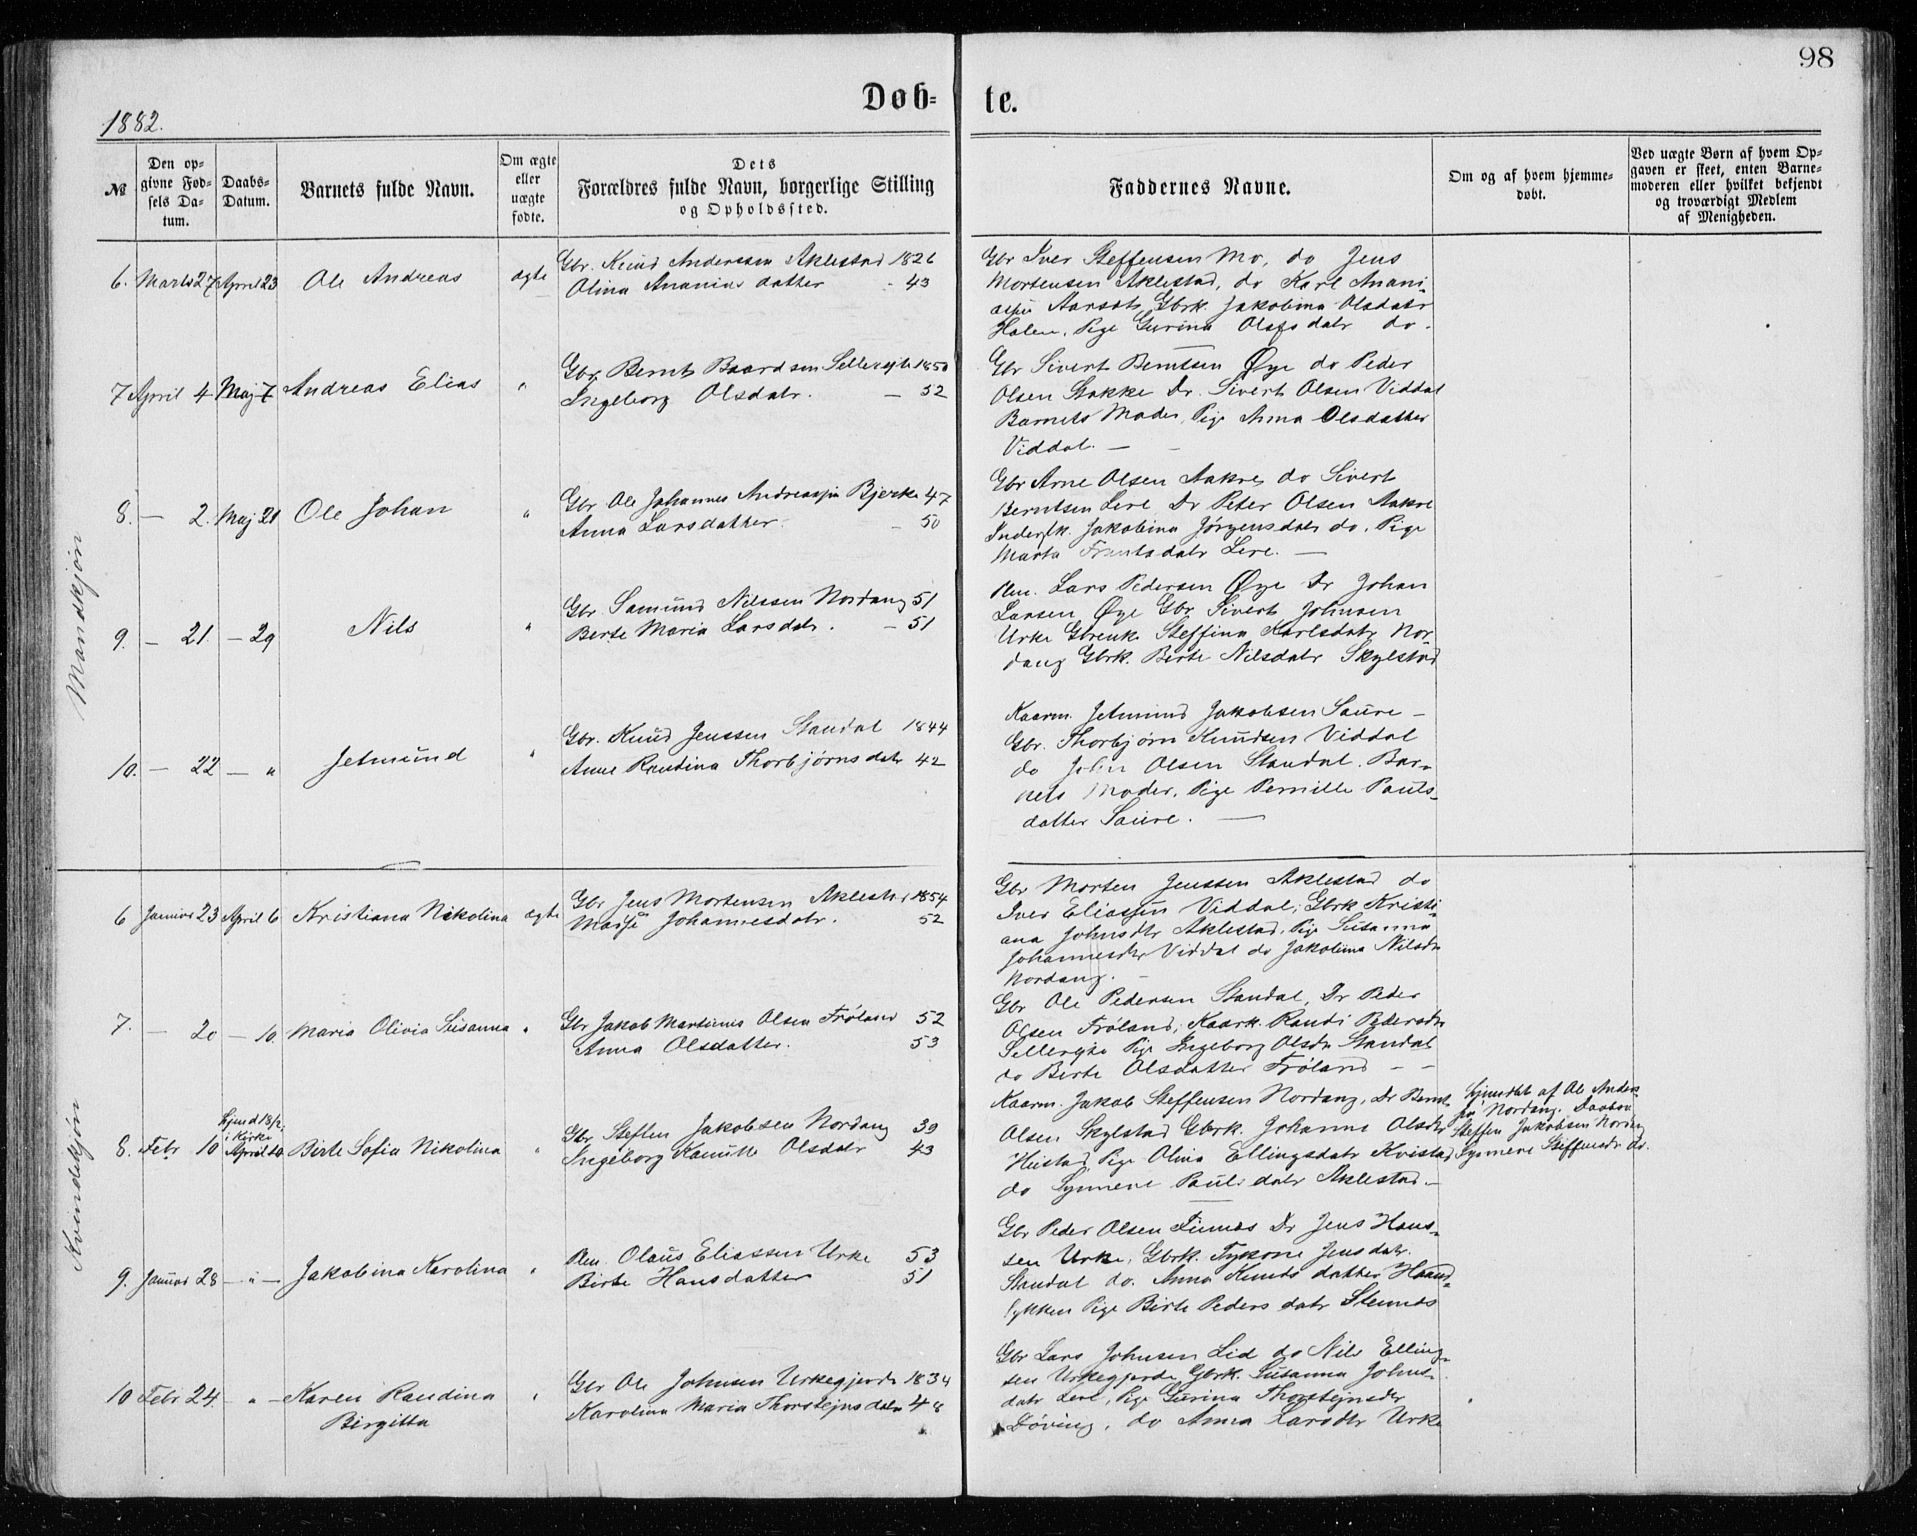 98
Døb-
te.
1882.
№
Den op-
givne Fød-
sels Da-
tum.
Daabs-
Datum.
Barnets fulde Navn.
Om ægte
eller
uægte
fødte.
Dets
Forældres fulde Navn, borgerlige Stilling
og Opholdssted.
Faddernes Navne.
Om og af hvem hjemme-
døbt.
Ved uægte Børn af hvem Op-
gaven er skeet, enten Barne-
moderen eller hvilket bekjendt
og troværdigt Medlem
af Menigheden.
Mandkjøn
6. Marts 27 April 23 Ole Andreas ægte
Gbr. Knud Anderssen Aklestad 1826
Olina Ananias datter - 43
Gbr Iver Steffensen Mo, do Jens
Mortensen Aklestad, do Karl Anani-
Aarseth, Gbrk. Jakobina Olsdatr
Holen, Pige Gurina Olafsdatr do.
7 April 4 Maj 7 Andreas Elias "
Gbr. Bernt Baardsen 1850
Ingeborg Olsdatr. — 52
Gbr Sivert Berntsen Øye do Peder
Olsen Stokke Dr. Sivert Olsen Viddal
Barnets Moder, Pige Anna Olsdatter
Viddal. —
8. — 2. Maj 21 Ole Johan "
Gbr. Ole Johannes Andreassen Bjerke 47
Anna Larsdatter. — 50
Gbr Arne Olsen Aakre, do Sivert
Berntsen Lere Dr Peter Olsen Aakre
Jakobina Jörgensdatr do, Pige
Marta datr Lere. —
9. — 21. — 29 Nils "
Gbr. Samund Nilssen Nordang 51
Berte Maria Larsdatr. — 51
Lars Pedersen Øye Dr Johan
Larsen Øye Gbr Sivert Johnsen
Urke Gbrenke Steffina Karlsdatr Nor-
dang Gbrk. Berte Nilsdatr Skylstad
10. — 22 — " Jetmund "
Gbr. Knud Jenssen Standal 1844
Anne Randina Thorbjørnsdatr 42
Kaarm. Jetmund Jakobsen Saure —
Gbr. Thorbjørn Knudsen Viddal
do John Olsen Standal. Bar-
nets Moder, Pige Pernille Pauls-
datter Saure. —
Kvindekjøn
6 Januar 23 April 6 Kristiana Nikolina ægte
Gbr Jens Mortensen Aklestad 1854
Johannesdatr. 52
Gbr Morten Jenssen Aklestad do
Iver Eliassen Viddal; Gbrk Kristi-
ana Johnsdtr Aklestad, Pige Susanna
Johannesdtr Viddal do Jakobina Nilsdtr
Nordang. —
7. — 20 — 10. Maria Olivia Susanna "
Gbr Jakob Martinus Olsen Frøland 52
Anna Olsdatter. 53
Gbr Ole Pedersen Standal, Dr Peder
Olsen Frøland, Kaark. Randi Pedersdtr
Pige Ingeborg Olsdtr Standal
do Berte Olsdatter Frøland — —
8. Febr 10
hjemd 18/2
i Kirke
April 10 Birte Sofia Nikolina "
Gbr Steffen Jakobsen Nordang 39
Ingeborg Olsdatr 43
Kaarm. Jakob Steffensen Nordang, Dr Bernt
Olsen Skylstad Gbrk. Johanne Olsdtr
Hustad, Pige Olina Ellingsdatr Kvistad
do Synneve Paulsdatr Aklestad. —
hjemdøbt af Ole Anders-
sen Nordang.
Steffen Jakobsen Nordang
Synneve Steffensdtr do.
9. Januar 28 — " — Jakobina Karolina "
Olaus Eliassen Urke 53
Birte Hansdatter 51
Gbr Peder Olsen Dr Jens Hans-
sen Urke, Gbrk. Jensdatr.
Standal do. Anna Knuds datter Haand-
lykken Pige Birte Peders datr
10 Febr 24. " — Karen Randina "
Birgitta
Gbr Ole Johnsen Urkegjerde 1834
Karolina Maria Thorstejnsdatr 48
Gbr Lars Johnsen Lid do Nils Elling-
sen Urkegjerde, Gbrk. Susanna Johns-
datr Lere, Pige Gurina Thorstejnsdtr
Døving, do Anna Larsdtr Urke